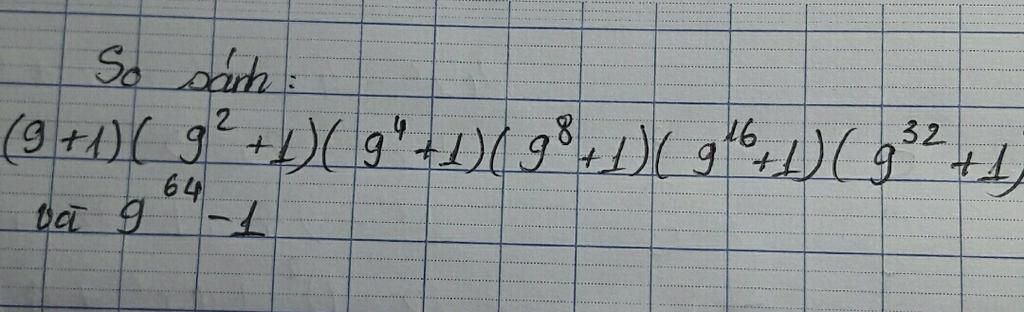 So sánh:
(9+1)(9²+1)(9⁴+1)(9⁸+1)(9¹⁶+1)(9³²+1)
và 9⁶⁴-1